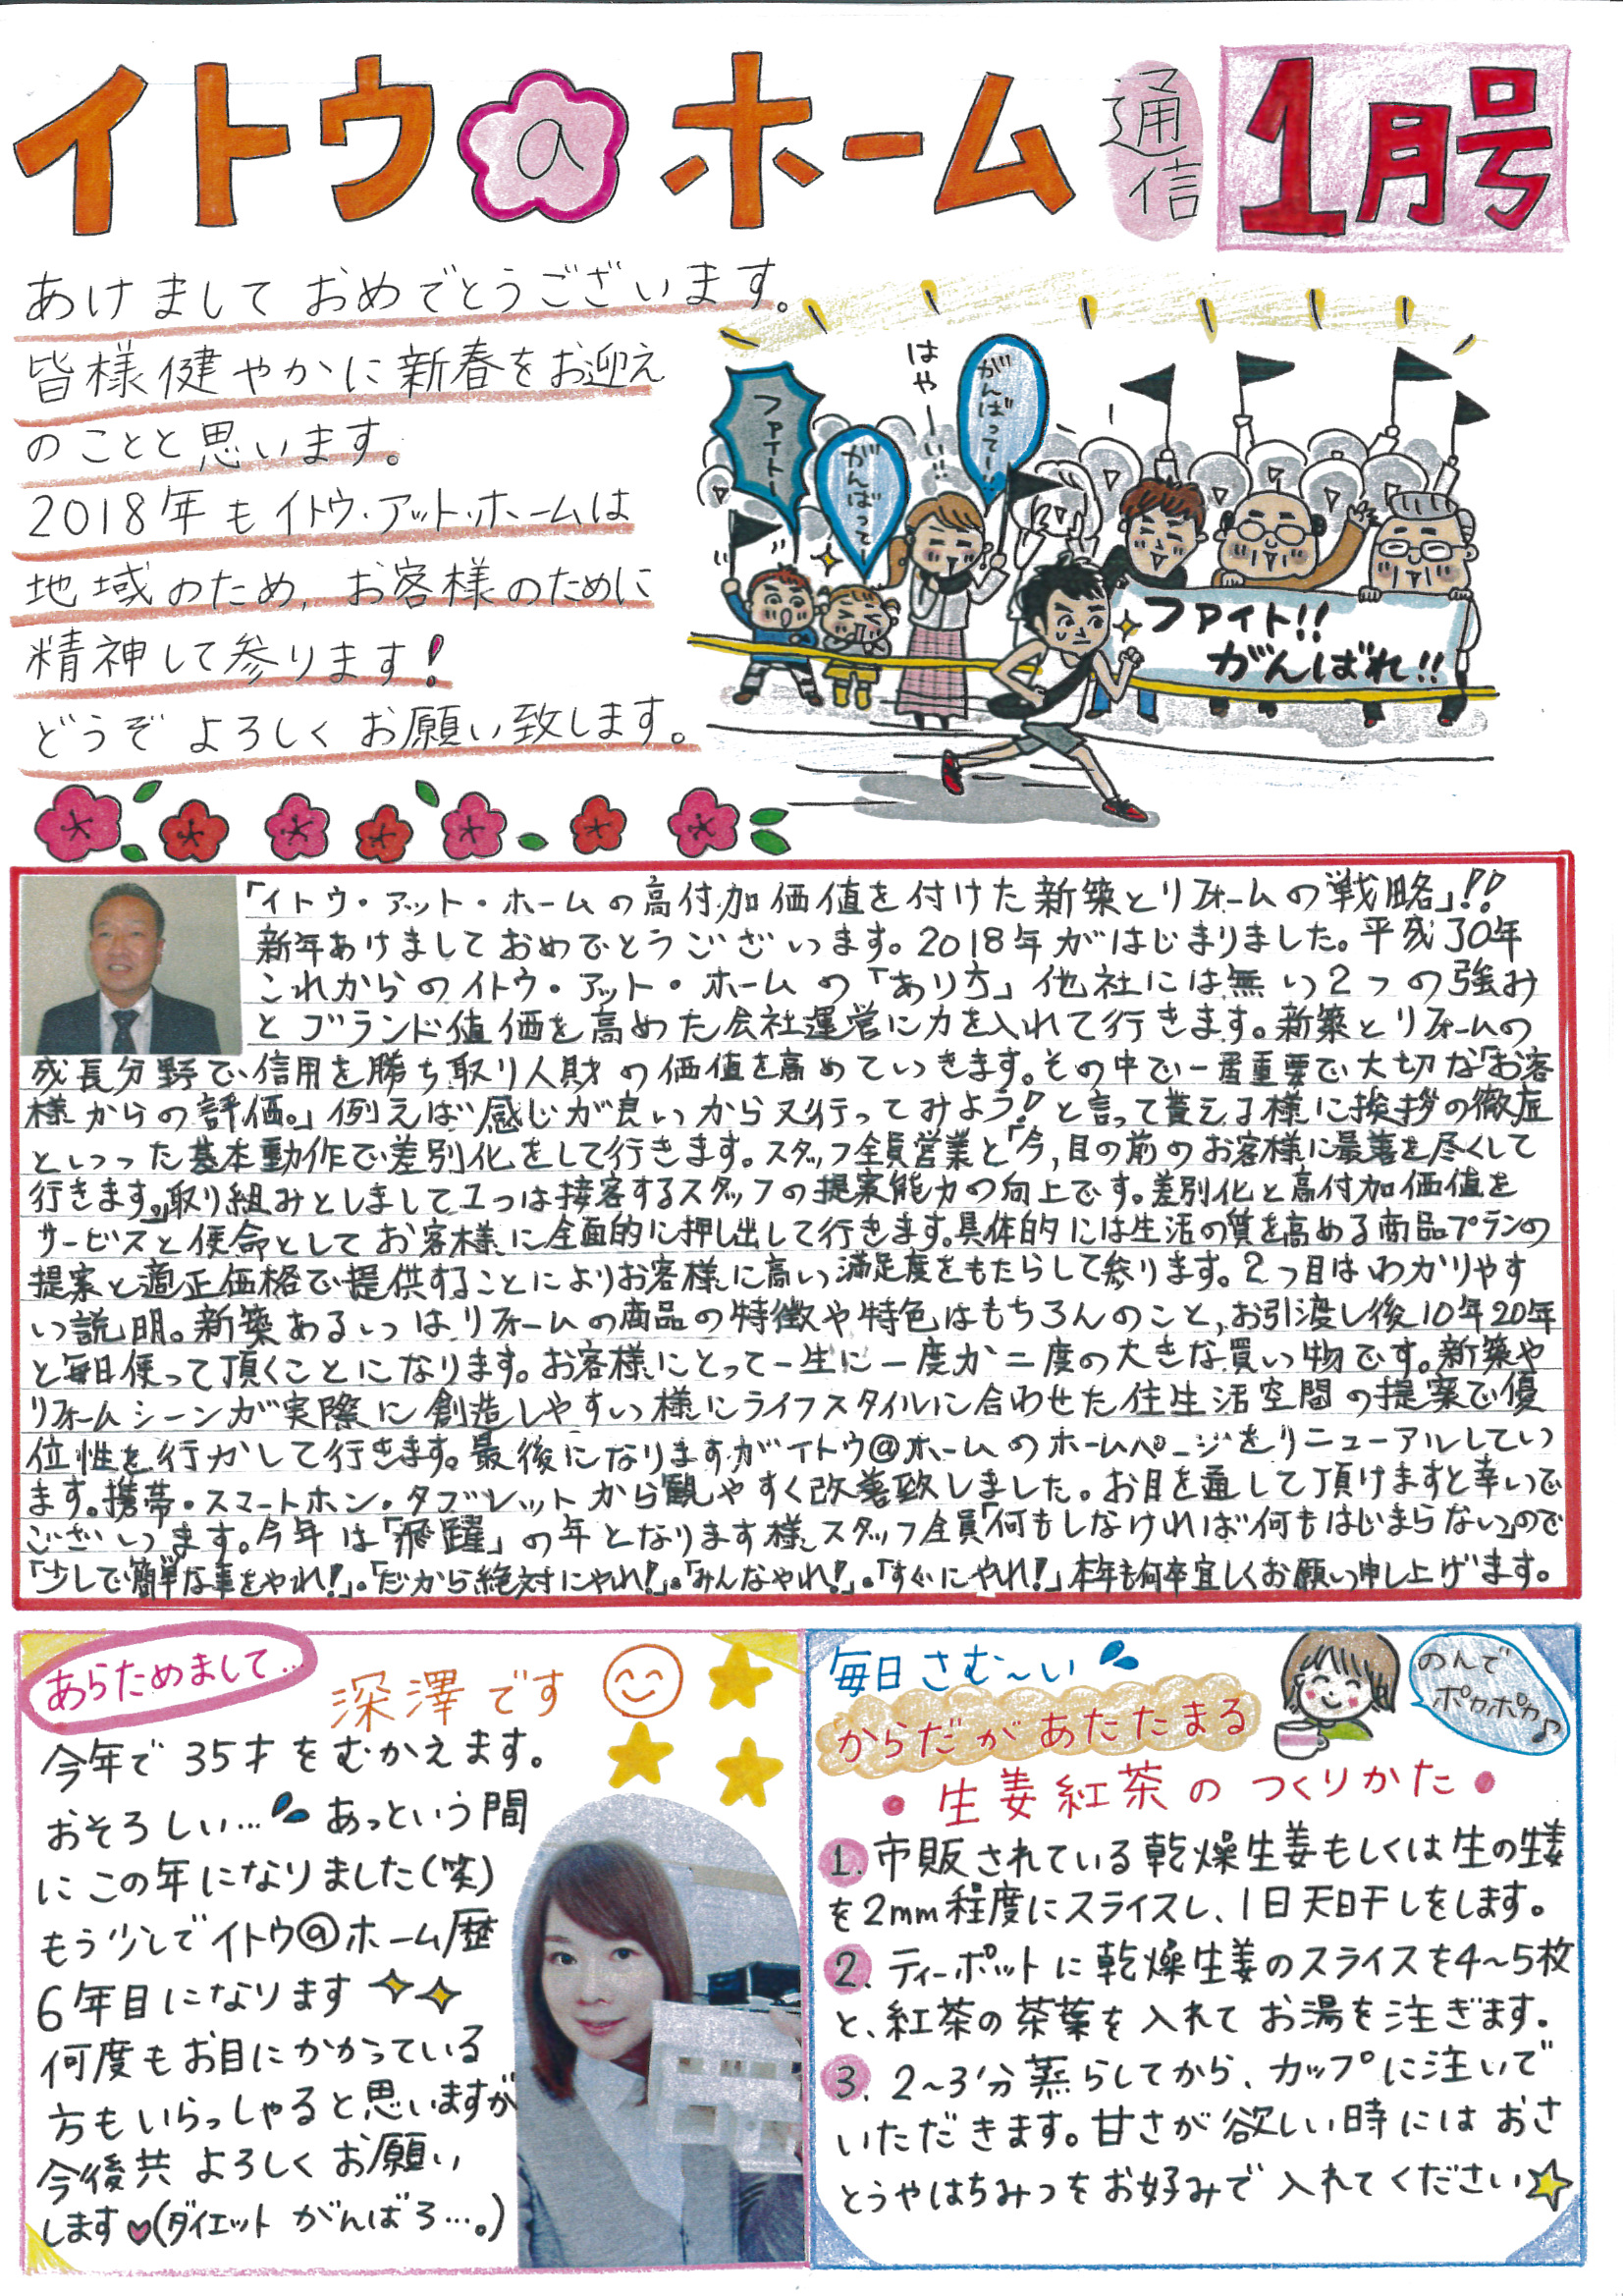 イトウ@ホーム 通信 1月号
あけまして おめでとうございます。
皆様健やかに新春をお迎え
のことと思います。
2018年もイトウ・アット・ホームは
地域のため、お客様のために
精神して参ります!
どうぞ よろしく お願い致します。
ファイトー
がんばってー
はやーい!!
がんばってー!!
ファイト!!
がんばれ!!
「イトウ・アット・ホームの高付加価値を付けた新築とリフォームの戦略」!!
新年あけましておめでとうございます。2018年がはじまりました。平成30年
これからのイトウ・アット・ホームの「あり方」他社には無い2つの強み
とブランド値価を高めた会社運営に力を入れて行きます。新築とリフォームの
成長分野で信用を勝ち取り人財の価値を高めていきます。その中で一番重要で大切な「お客
様からの評価。」例えば感じが良いから又行ってみよう!と言って貰える様に挨拶の徹底
といった基本動作で差別化をして行きます。スタッフ全員営業と「今、目の前のお客様に最善を尽くして
行きます。」取り組みとしまして1つは接客するスタッフの提案能力の向上です。差別化と高付加価値を
サービスと使命としてお客様に全面的に押し出して行きます。具体的には生活の質を高める商品プランの
提案と適正価格で提供することによりお客様に高い満足度をもたらして参ります。2つ目はわかりやす
い説明。新築あるいはリフォームの商品の特徴や特色はもちろんのこと、お引渡し後10年20年
と毎日使って頂くことになります。お客様にとって一生に一度か二度の大きな買い物です。新築や
リフォームシーンが実際に創造しやすい様にライフスタイルに合わせた住生活空間の提案で優
位性を行かして行きます。最後になりますがイトウ@ホームのホームページをリニューアルしてい
ます。携帯・スマートホン・タブレットから観やすく改善致しました。お目を通して頂けますと幸いで
ございます。今年は「飛躍」の年となります様、スタッフ全員「何もしなければ何もはじまらない」ので
「少しで簡単な事をやれ!」。「だから絶対にやれ!」。「みんなやれ!」。「すぐにやれ!」本年も何卒宜しくお願い申し上げます。
あらためまして…
深澤です
今年で35才をむかえます。
おそろしい… あっという間
にこの年になりました(笑)
もう少しでイトウ@ホーム歴
6年目になります
何度もお目にかかっている
方もいらっしゃると思いますが
今後共 よろしく お願い
します(ダイエット がんばろ…。)
毎日さむ〜い
からだがあたたまる
・生姜紅茶のつくりかた・
のんで
ポカポカ♪
1. 市販されている乾燥生姜もしくは生の生姜
を2mm程度にスライスし、1日天日干しをします。
2. ティーポットに乾燥生姜のスライスを4〜5枚
と、紅茶の茶葉を入れてお湯を注ぎます。
3. 2〜3分蒸らしてから、カップに注いで
いただきます。甘さが欲しい時にはおさ
とうやはちみつをお好みで入れてください